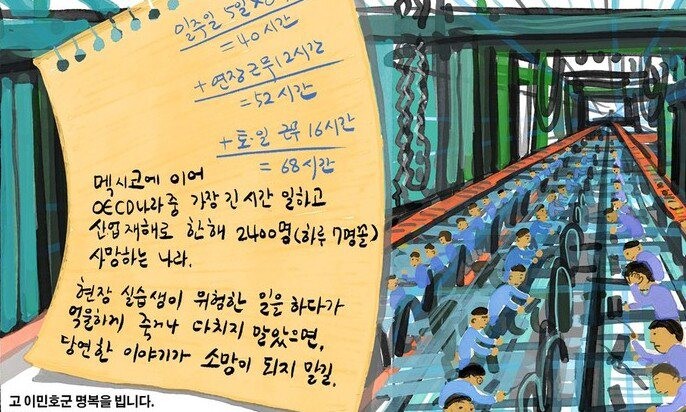 일주일 5일
= 40시간
+ 연장근무 12시간
= 52시간
+ 토·일 근무 16시간
= 68시간
멕시코에 이어
OECD나라중 가장 긴 시간 일하고
산업재해로 한해 2400명(하루 7명꼴)
사망하는 나라.
현장 실습생이 위험한 일을 하다가
억울하게 죽거나 다치지 말았으면,
당연한 이야기가 소망이 되지 말길.
고 이민호군 명복을 빕니다.